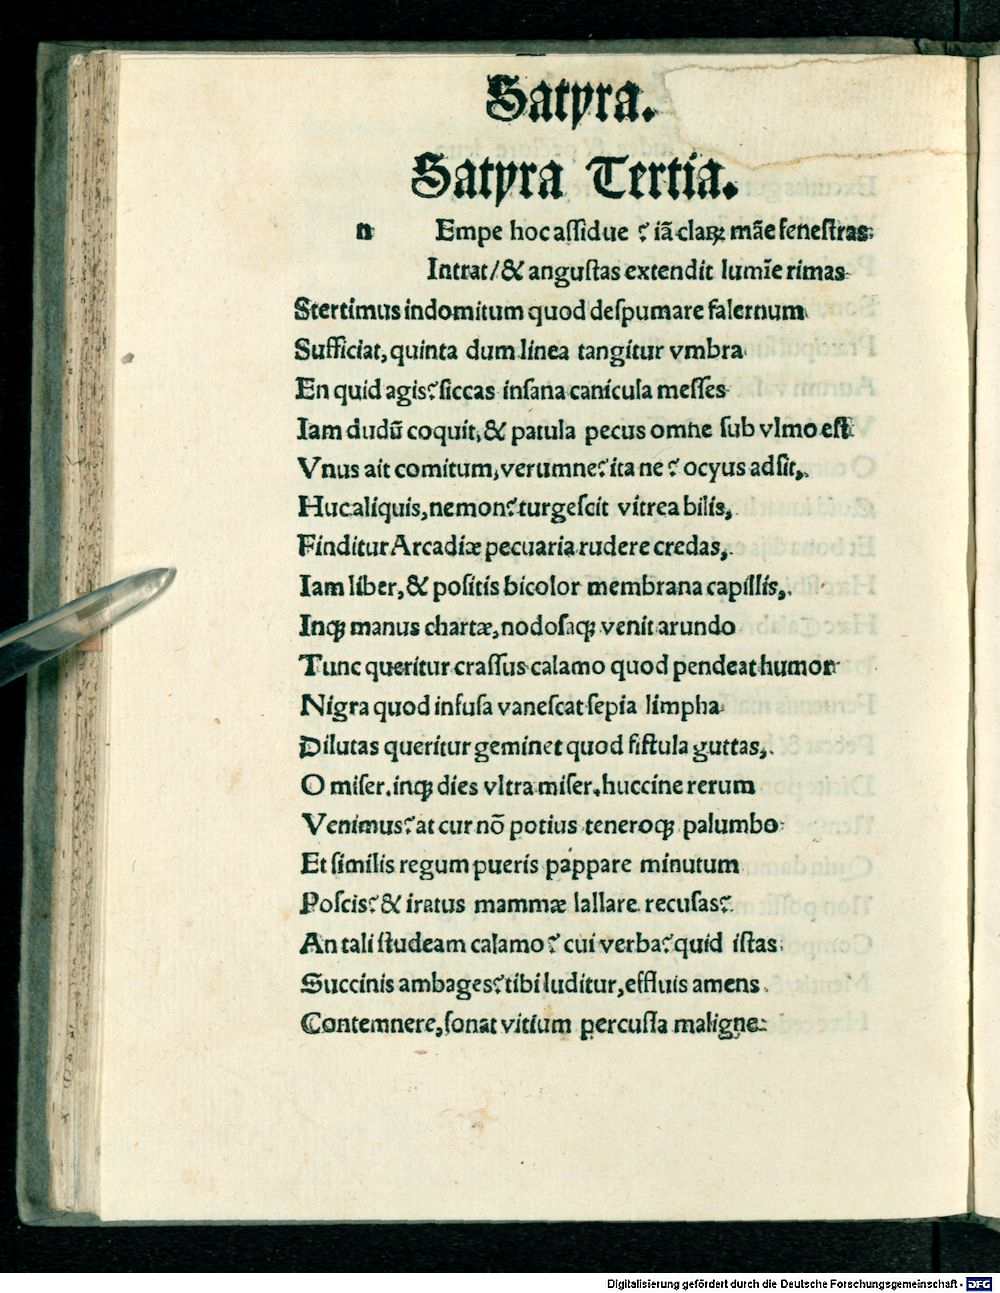 Satyra.
Satyra Tertia.
n Empe hoc assidue ? iā claꝝ māe fenestras:
Intrat/& angustas extendit lumīe rimas.
Stertimus indomitum quod despumare falernum
Sufficiat, quinta dum linea tangitur vmbra.
En quid agis? siccas insana canicula messes
Iam dudū coquit, & patula pecus omne sub vlmo est
Vnus ait comitum, verumne? ita ne ? ocyus adsit,.
Huc aliquis, nemon? turgescit vitrea bilis,.
Finditur Arcadiæ pecuaria rudere credas,.
Iam liber, & positis bicolor membrana capillis,.
Inqꝫ manus chartæ, nodosaqꝫ venit arundo
Tunc queritur crassus calamo quod pendeat humor
Nigra quod infusa vanescat sepia limpha.
Dilutas queritur geminet quod fistula guttas,.
O miser, inqꝫ dies vltra miser, huccine rerum
Venimus? at cur nō potius teneroqꝫ palumbo
Et similis regum pueris pappare minutum
Poscis? & iratus mammæ lallare recusas?
An tali studeam calamo? cui verba? quid istas.
Succinis ambages? tibi luditur, effluis amens.
Contemnere, sonat vitium percussa maligne.
Digitalisierung gefördert durch die Deutsche Forschungsgemeinschaft - DFG